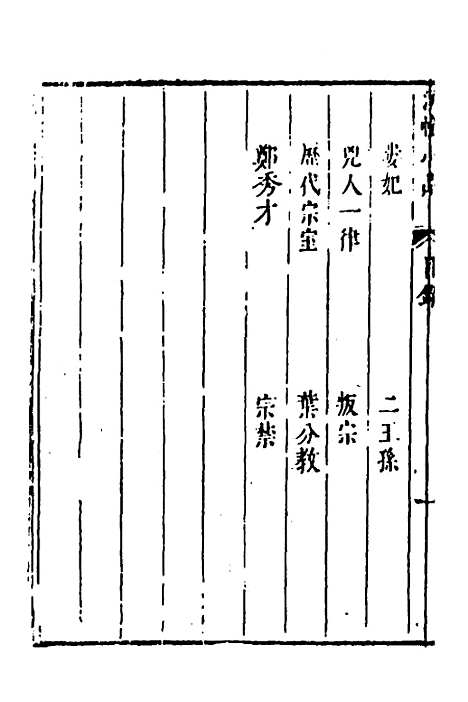 婁妃　二王孫
兇人一律　叛宗
歷代宗室　葉分教
鄭秀才　宗禁